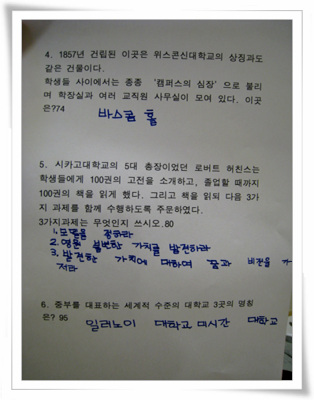 4. 1857년 건립된 이곳은 위스콘신대학교의 상징과도
같은 건물이다.
학생들 사이에서는 종종 '캠퍼스의 심장'으로 불리
며 학장실과 여러 교직원 사무실이 모여 있다. 이곳
은?74
바스콤 홀
5. 시카고대학교의 5대 총장이었던 로버트 허친스는
학생들에게 100권의 고전을 소개하고, 졸업할 때까지
100권의 책을 읽게 했다. 그리고 책을 읽되 다음 3가
지 과제를 함께 수행하도록 주문하였다.
3가지과제는 무엇인지 쓰시오.80
1. 모델을 정하라
2. 영원 불변한 가치를 발견하라
3. 발견한 가치에 대하여 꿈과 비전을 가
져라
6. 중부를 대표하는 세계적 수준의 대학교 3곳의 명칭
은? 95
일리노이 대학교 미시간 대학교